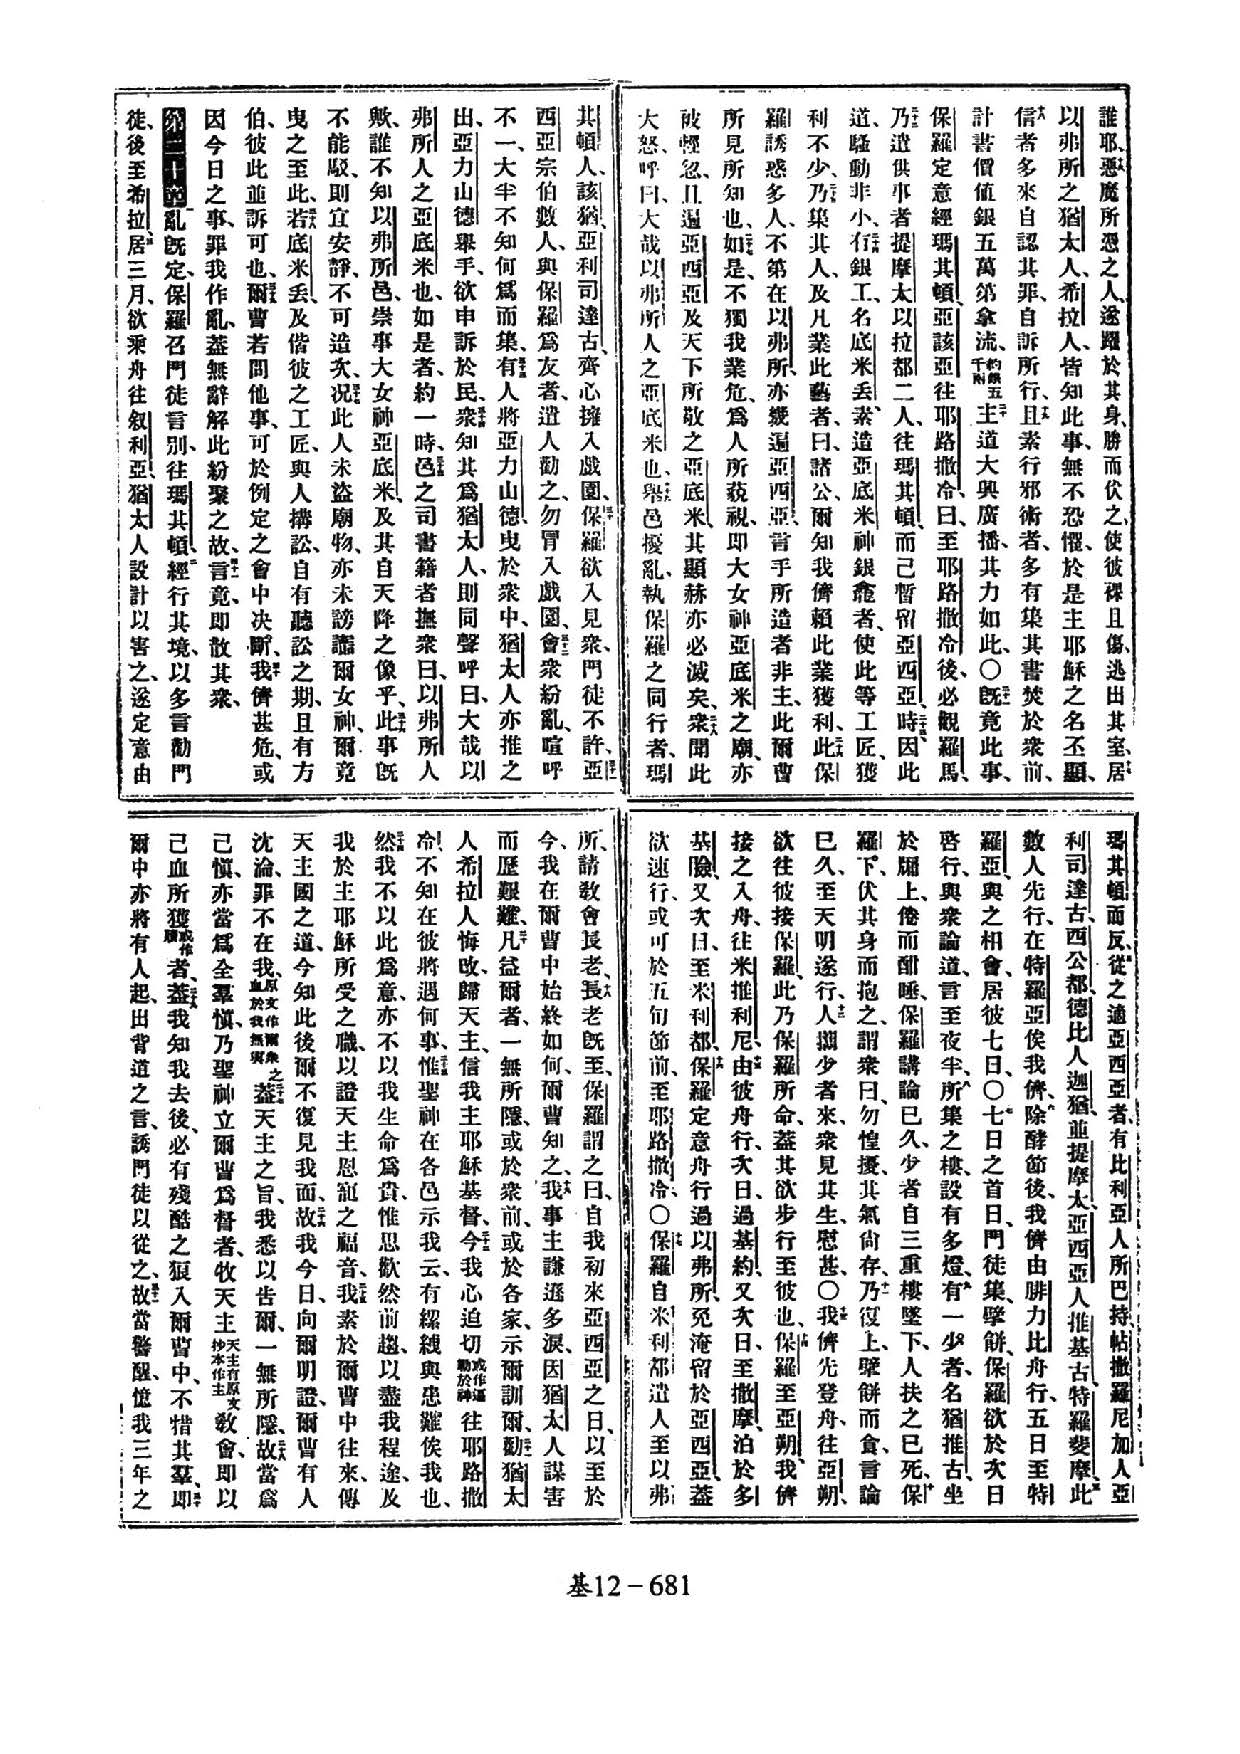 誰耶、惡魔所憑之人、遂躍於其身、勝而伏之、使彼裸且傷、逃出其室、居
以弗所之猶太人、希拉人、皆知此事、無不恐懼、於是主耶穌之名丕顯、
信者多來自認其罪、自訴所行、且素行邪術者、多有集其書焚於衆前、
計書價值銀五萬第拿流、約銀五千兩主道大興廣播、其力如此、〇旣竟此事、
保羅定意經瑪其頓、亞該亞往耶路撒冷、曰、至耶路撒冷後、必觀羅馬、
乃遣供事者提摩太以拉都二人、往瑪其頓、而己暫留亞西亞、時因此
道、騷動非小、有銀工、名底米丢、素造亞底米神銀龕者、使此等工匠、獲
利不少、乃集其人、及凡業此藝者、曰、諸公、爾知我儕賴此業獲利、此保
羅誘惑多人、不第在以弗所、亦幾遍亞西亞、言手所造者非主、此爾曹
所見所知也、如是、不獨我業危、爲人所藐視、即大女神亞底米之廟、亦
被輕忽、且遍亞西亞及天下所敬之亞底米、其顯赫亦必滅矣、衆聞此
大怒、呼曰、大哉以弗所人之亞底米也、舉邑擾亂、執保羅之同行者、瑪
其頓人、該猶、亞利司達古、齊心擁入戲園、保羅欲入見衆、門徒不許、亞
西亞宗伯數人、與保羅爲友者、遣人勸之、勿冒入戲園、會衆紛亂、喧呼
不一、大半不知何爲而集、有人將亞力山德曳於衆中、猶太人亦推之
出、亞力山德舉手、欲申訴於民、衆知其爲猶太人、則同聲呼曰、大哉以
弗所人之亞底米也、如是者、約一時、邑之司書籍者撫衆曰、以弗所人
歟、誰不知以弗所邑、崇事大女神亞底米、及其自天降之像乎、此事旣
不能駁、則宜安靜、不可造次、况此人未盜廟物、亦未謗讟爾女神、爾竟
曳之至此、若底米丢、及偕彼之工匠、與人搆訟、自有聽訟之期、且有方
伯、彼此並訴可也、爾曹若問他事、可於例定之會中决斷、我儕甚危、或
因今日之事、罪我作亂、蓋無辭解此紛聚之故、言竟、即散其衆、
第二十章亂旣定、保羅召門徒言別、往瑪其頓、經行其境、以多言勸門
徒、後至希拉、居三月、欲乘舟往叙利亞、猶太人設計以害之、遂定意由
瑪其頓而反、從之適亞西亞者、有比利亞人所巴特、帖撒羅尼加人亞
利司達古、西公都、德比人迦猶、並提摩太、亞西亞人推基古、特羅斐摩、此
數人先行、在特羅亞俟我儕、除酵節後、我儕由腓力比舟行、五日至特
羅亞、與之相會、居彼七日、〇七日之首日、門徒集擘餅、保羅欲於次日
啓行、與衆論道、言至夜半、所集之樓、設有多燈、有一少者、名猶推古、坐
於牖上、倦而酣睡、保羅講論已久、少者自三重樓墜下、人扶之已死、保
羅下、伏其身而抱之、謂衆曰、勿惶擾、其氣尙存、乃復上擘餅而食、言論
已久、至天明遂行、人攜少者來、衆見其生、慰甚、〇我儕先登舟、往亞朔、
欲往彼接保羅、此乃保羅所命、蓋其欲步行至彼也、保羅至亞朔、我儕
接之入舟、往米推利尼、由彼舟行、次日、過基約、又次日、至撒摩、泊於多
基險、又次日、至米利都、保羅定意舟行過以弗所、免淹留於亞西亞、蓋
欲速行、或可於五旬節前、至耶路撒冷、〇保羅自米利都遣人至以弗
所、請敎會長老、長老旣至、保羅謂之曰、自我初來亞西亞之日、以至於
今、我在爾曹中始終如何、爾曹知之、我事主謙遜多淚、因猶太人謀害
而歷艱難、凡益爾者、一無所隱、或於衆前、或於各家、示爾訓爾、勸猶太
人希拉人悔改、歸天主、信我主耶穌基督、今我心迫切或作逼勒於神往耶路撒
冷、不知在彼將遇何事、惟聖神在各邑示我云、有縲絏與患難俟我也、
然我不以此爲意、亦不以我生命爲貴、惟思歡然前趨、以盡我程途、及
我於主耶穌所受之職、以證天主恩寵之福音、我素於爾曹中往來、傳
天主國之道、今知此後爾不復見我面、故我今日向爾明證、爾曹有人
沈淪、罪不在我、原文作爾衆之血於我無與蓋天主之旨、我悉以吿爾、一無所隱、故當爲
己慎、亦當爲全羣慎、乃聖神立爾曹爲督者、牧天主天主有原文抄本作主敎會、即以
己血所獲或作贖者、蓋我知我去後、必有殘酷之狼入爾曹中、不惜其羣、即
爾中亦將有人起、出背道之言、誘門徒以從之、故當警醒、憶我三年之
基12－681